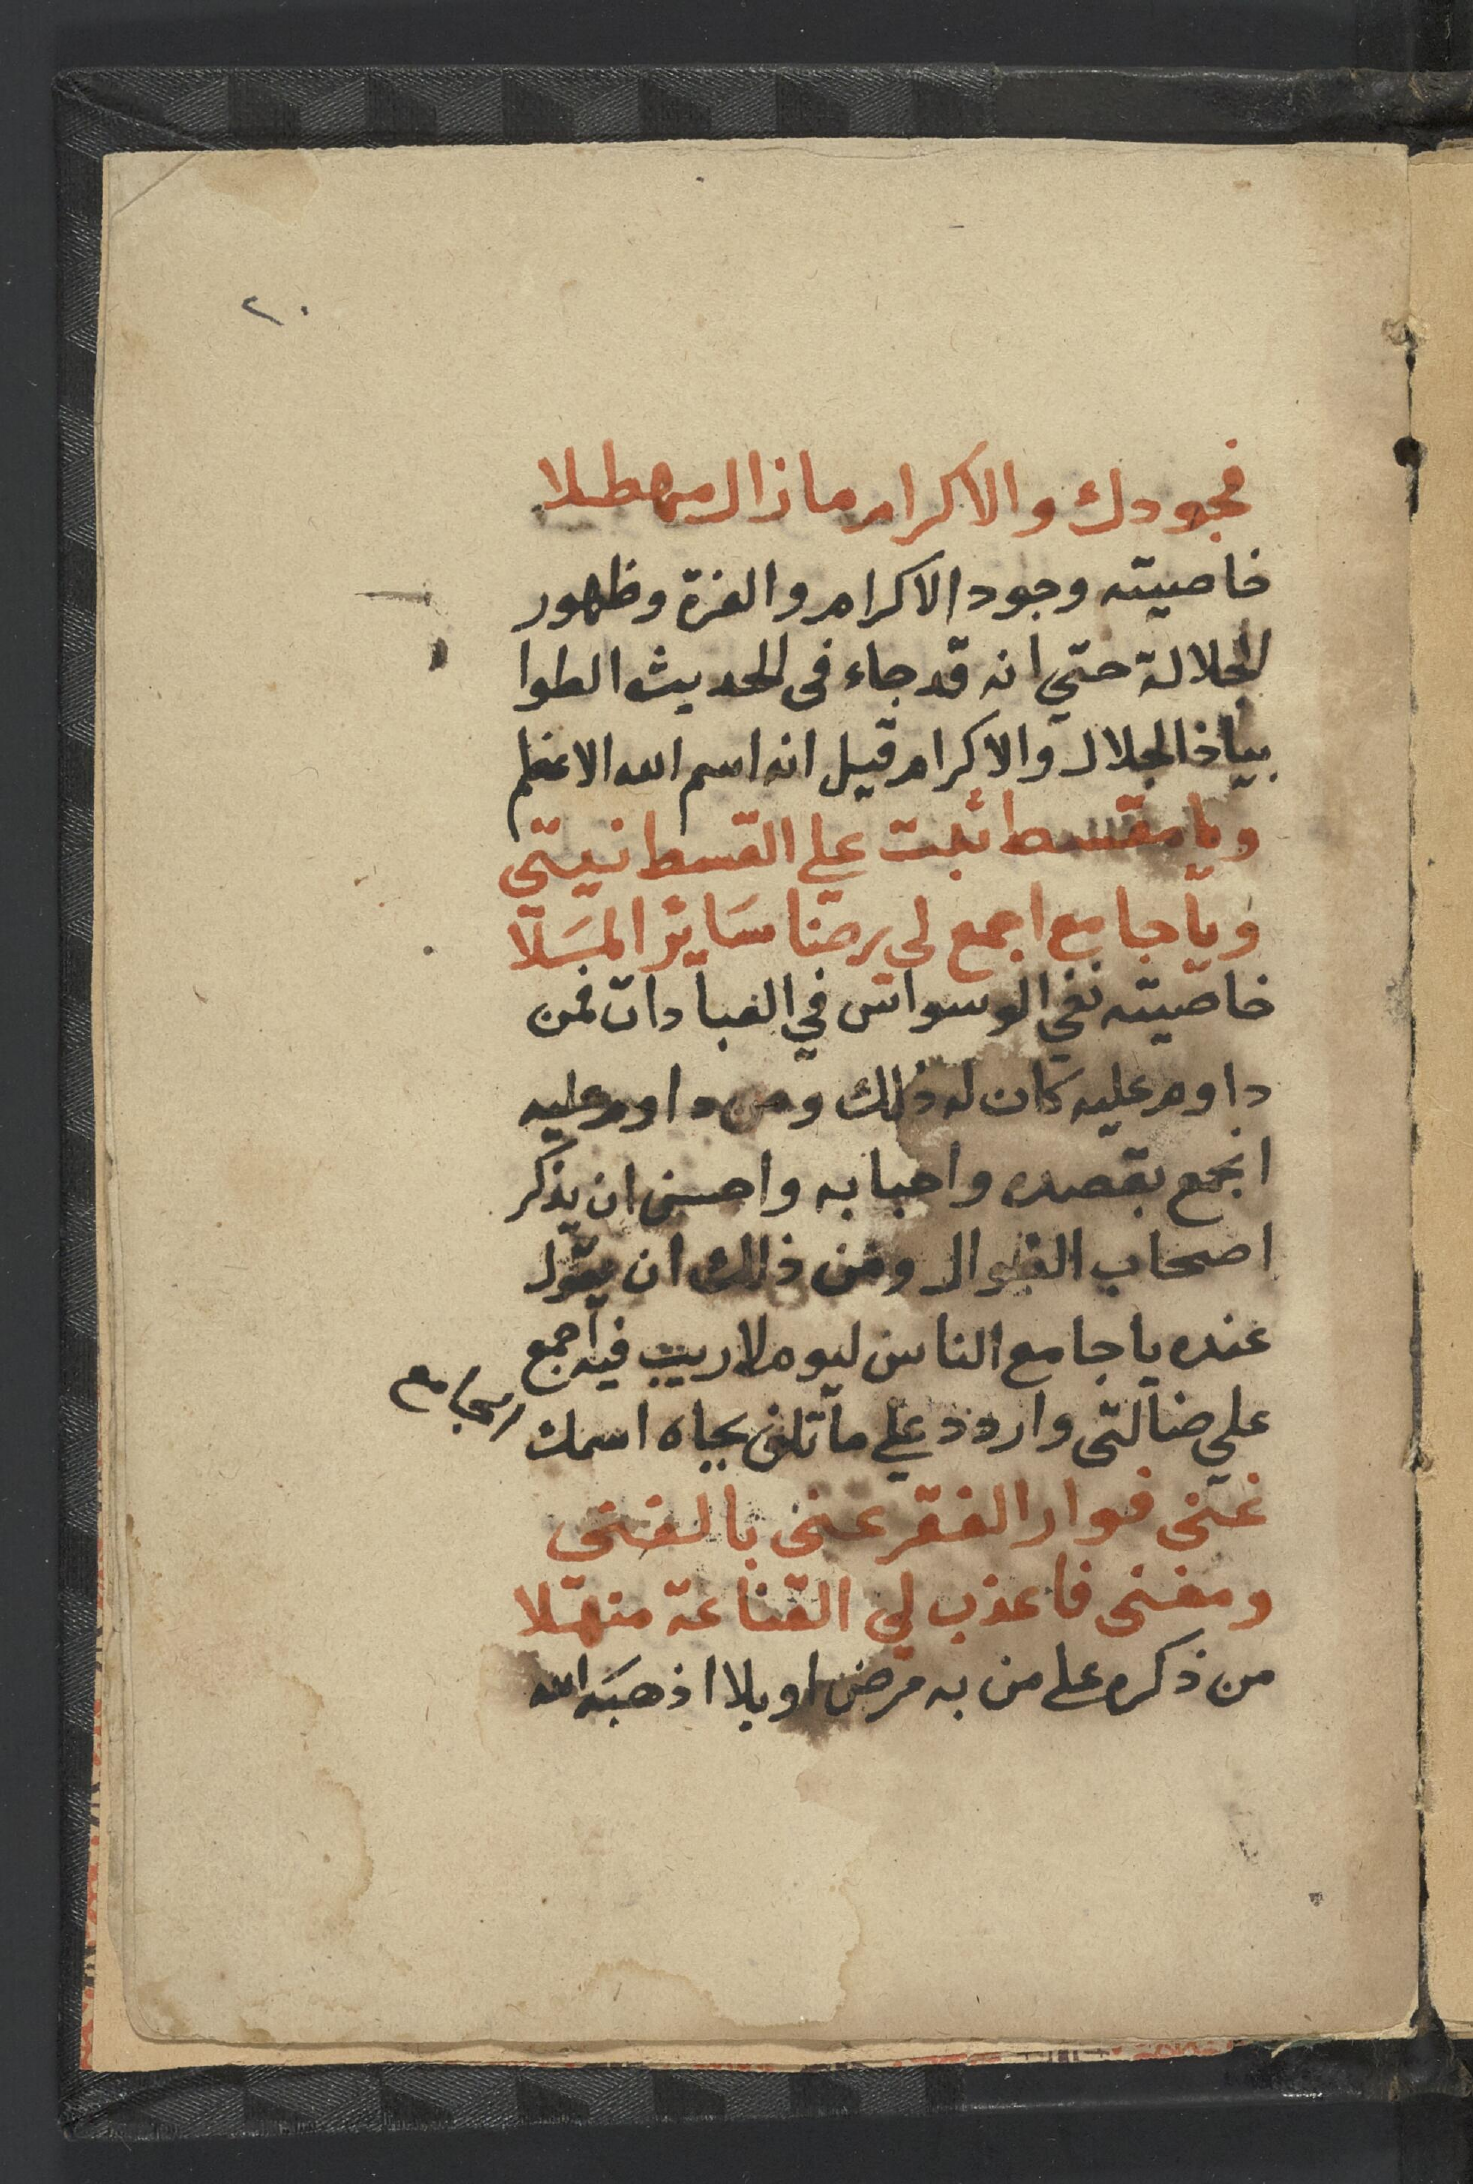 ٢٠
فجودك والاكرام مازال مهطلا
خاصيته وجود الاكرام والعزة وظهور
الجلالة حتي انه قد جاء فى الحديث الطوا
بياذا الجلال والاكرام قيل انه اسم الله الاعظم
ويا مقسط ثبت علي القسط نيتي
ويا جامع اجمع لي رضا سَايْر المَسَلا
خاصيته نفي الوسواس في العبادات فمن
داوم عليه كان له ذلك ومن داوم عليه
انجمع بقصده واحبابه واحسن ان يذكر
اصحاب الضوال ومن ذلك ان يقول
عنده يا جامع الناس ليوم لا ريب فيه اجمع
علي ضالتى واردد علي ما تلف بجاه اسمك الجامع
غنى فوار الفقر عنى بالغنى
ومغنى فاعذب لي القناعة منهلا
من ذكره على من به مرض او بلا اذهبَه الله